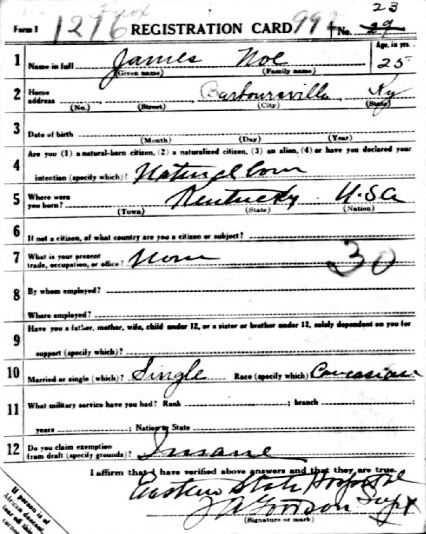 Form 1 1276 REGISTRATION CARD 992 No. 29 23
Age, in yrs.
1 Name in full James Noe 25
(Given name) (Family name)
2 Home address Barboursville Ky
(No.) (Street) (City) (State)
3 Date of birth
(Month) (Day) (Year)
4 Are you (1) a natural-born citizen, (2) a naturalized citizen, (3) an alien, (4) or have you declared your
intention (specify which)? Natural born
5 Where were you born? Kentucky U.S.A
(Town) (State) (Nation)
6 If not a citizen, of what country are you a citizen or subject?
7 What is your present trade, occupation, or office? None 30
8 By whom employed?
Where employed?
9 Have you a father, mother, wife, child under 12, or a sister or brother under 12, solely dependent on you for
support (specify which)?
10 Married or single (which)? Single Race (specify which) Caucasian
11 What military service have you had? Rank ; branch
years ; Nation or State
12 Do you claim exemption from draft (specify grounds)? Insane
I affirm that I have verified above answers and that they are true.
Eastern State Hospital
Supt
(Signature or mark)
If person is of
African descent,
tear off this
corner